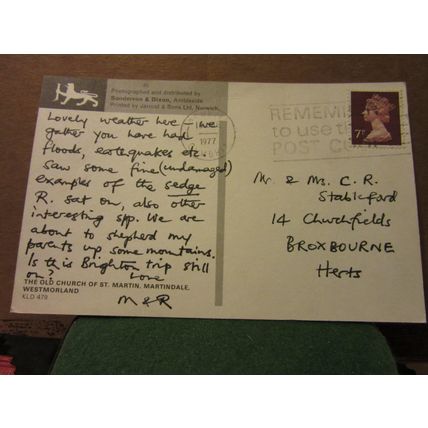 Photographed and distributed by
Sanderson & Dixon, Ambleside
Printed by Jarrold & Sons Ltd, Norwich.
Lovely weather here – we
gather you have had
floods, earthquakes etc.
Saw some fine (undamaged)
examples of the sedge
R. sat on, also other
interesting spp. We are
about to shepherd my
parents up some mountains.
Is this Brighton trip still
on?
Love
M & R
THE OLD CHURCH OF ST. MARTIN, MARTINDALE,
WESTMORLAND
KLD 479
1977
REMEMBER
to use the
POST CODE
7P
Mr. & Mrs. C. R.
Stableford
14 Churchfields
BROXBOURNE
Herts